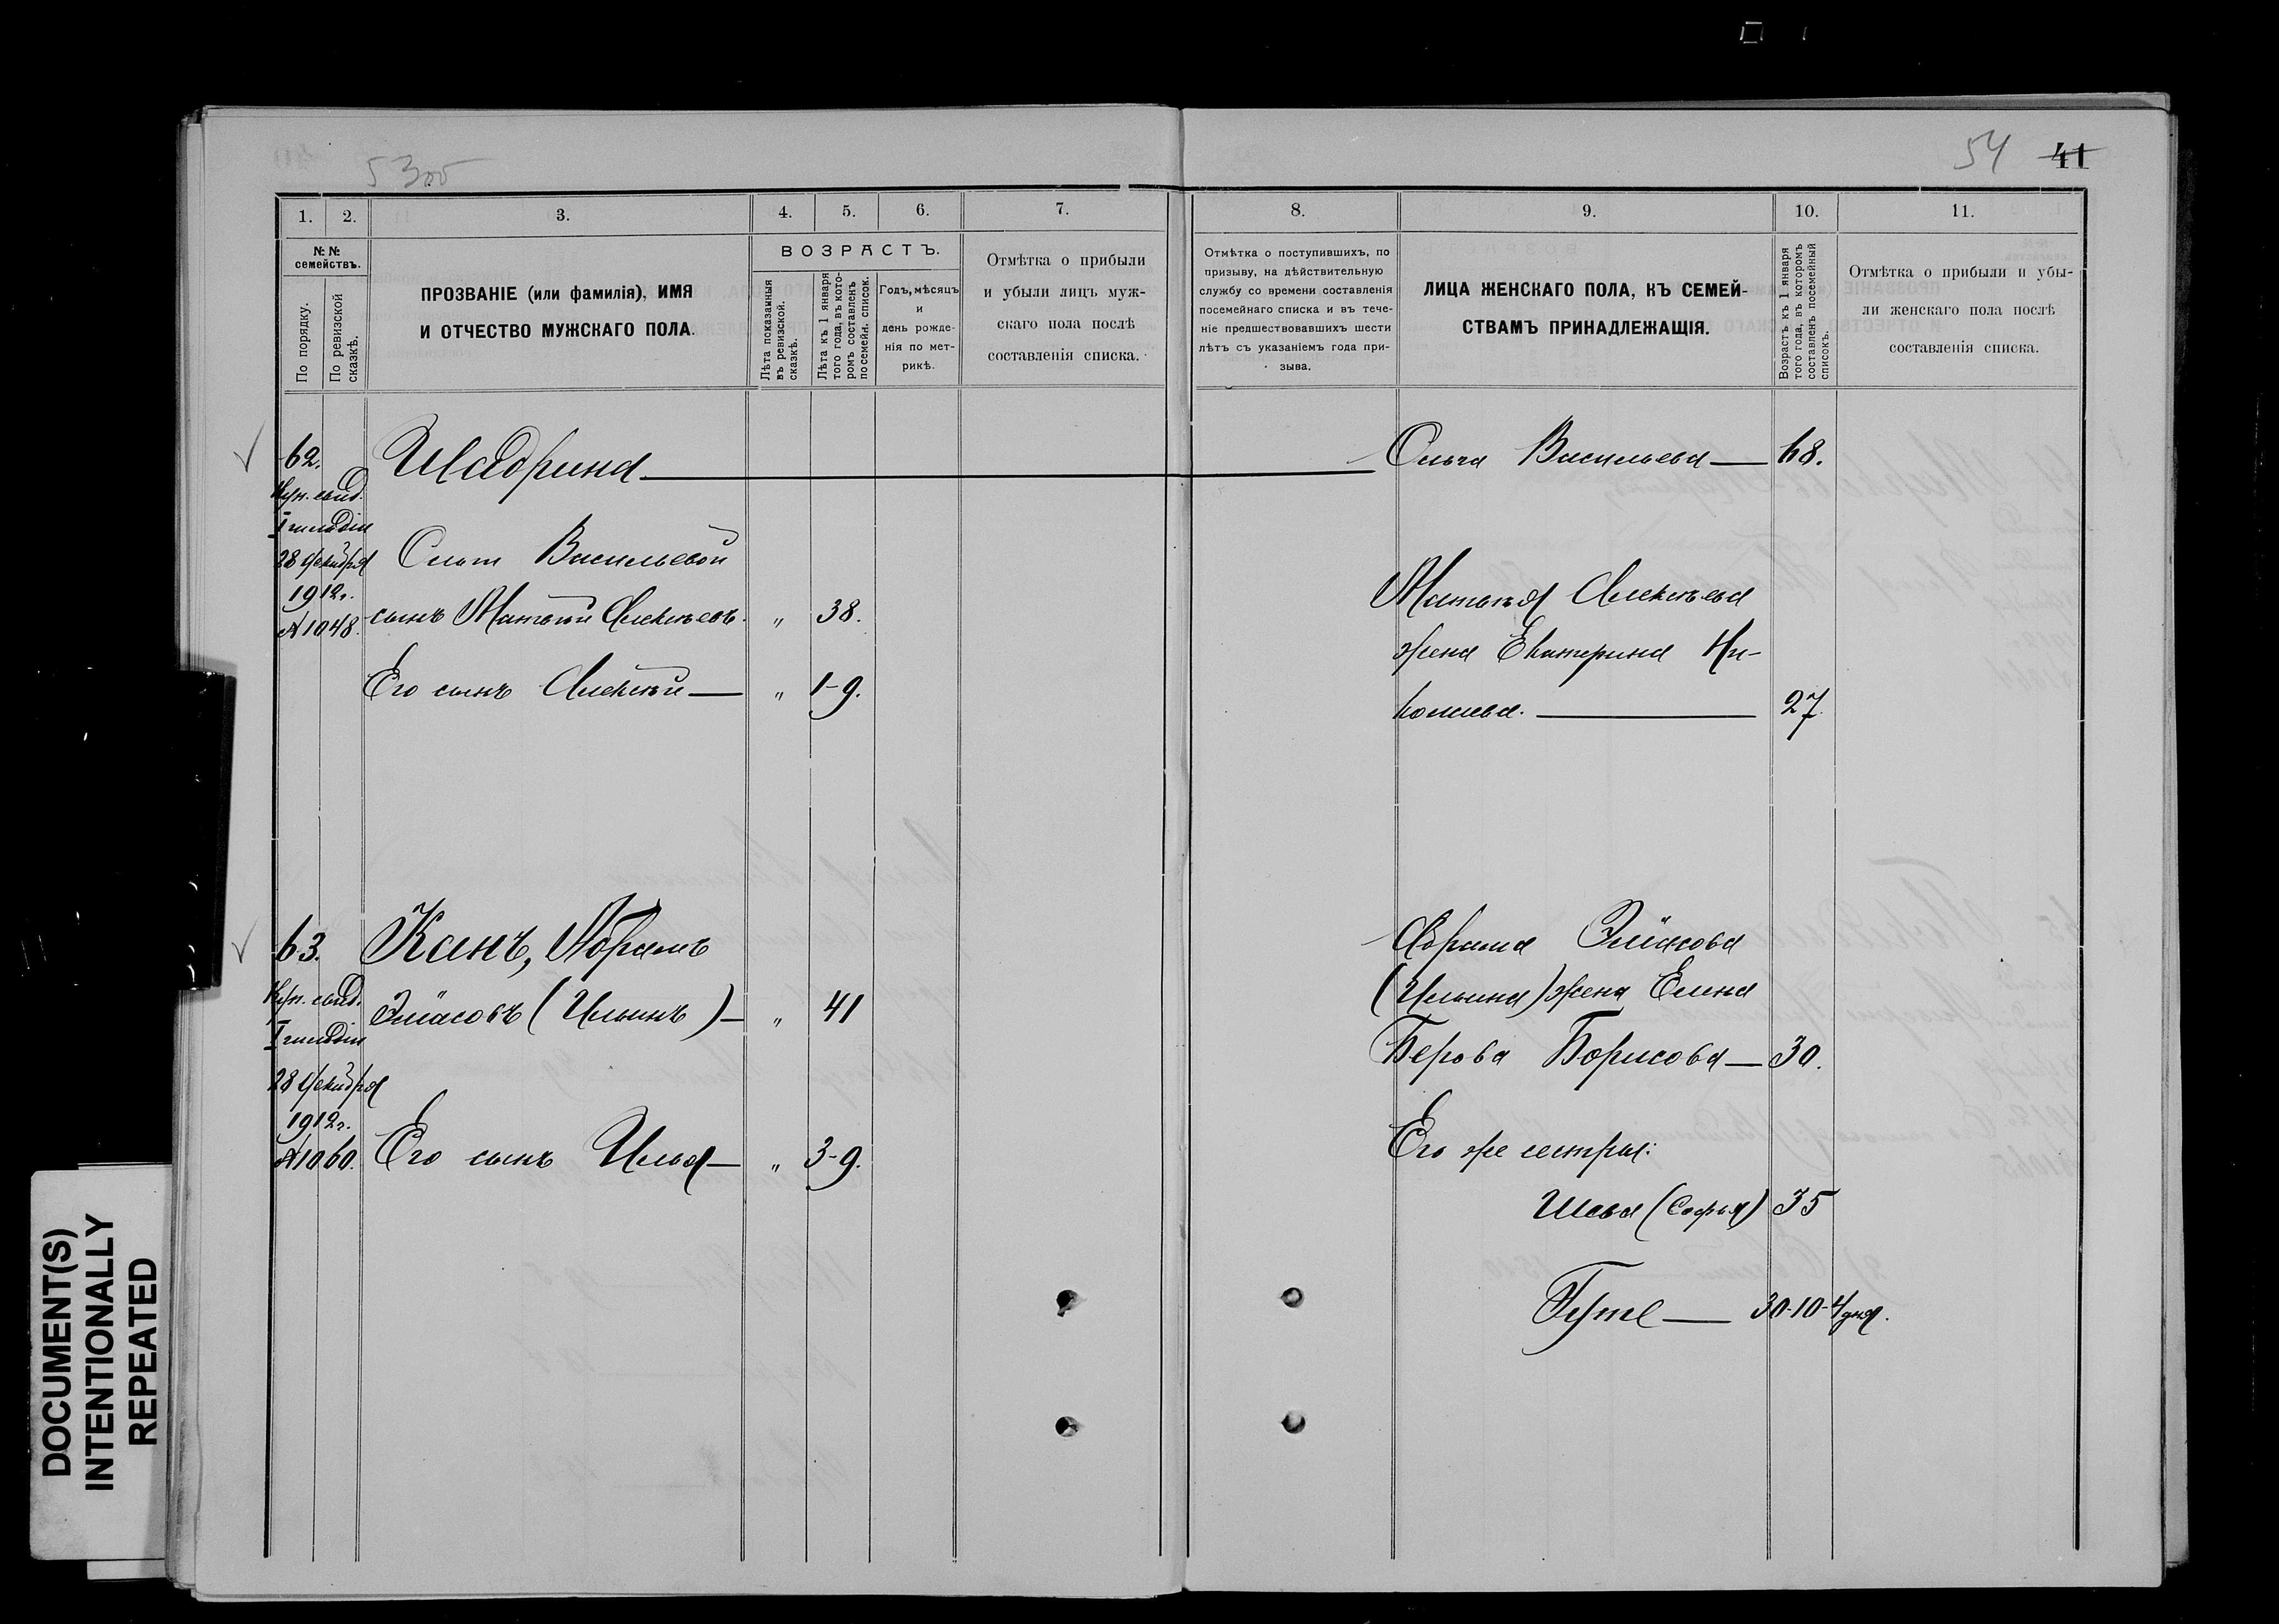 53об
54 41
1. 2. 3. 4. 5. 6. 7. 8. 9. 10. 11.
№№ семействъ.
По порядку.
По ревизской сказкѣ.
ПРОЗВАНІЕ (или фамилія), ИМЯ
И ОТЧЕСТВО МУЖСКАГО ПОЛА.
ВОЗРАСТЪ.
Лѣта показанныя
въ ревизской.
сказкѣ.
Лѣта къ 1 января
того года, въ кото-
ромъ составленъ
посемейн. список.
Годъ, мѣсяцъ
и
день рожде-
нія по мет-
рикѣ.
Отмѣтка о прибыли
и убыли лицъ муж-
скаго пола послѣ
составленія списка.
Отмѣтка о поступившихъ, по
призыву, на дѣйствительную
службу со времени составленія
посемейнаго списка и въ тече-
ніе предшествовавшихъ шести
лѣтъ съ указаніемъ года при-
зыва.
ЛИЦА ЖЕНСКАГО ПОЛА, КЪ СЕМЕЙ-
СТВАМЪ ПРИНАДЛЕЖАЩІЯ.
Возрастъ къ 1 января
того года, въ которомъ
составленъ посемейный
списокъ.
Отмѣтка о прибыли и убы-
ли женскаго пола послѣ
составленія списка.
62.
Куп. свид.
I гильдіи
28 декабря
1912г.
№1048.
Шадрина
Ольги Васильевой
сынъ Матвѣй Алексѣевъ. „ 38.
Его сынъ Алексѣй — „ 1-9.
Ольга Васильева — 68.
Матвѣя Алексѣева
жена Екатерина Ни-
колаева. — 27.
63.
Куп. свид.
I гильдіи
28 декабря
1912г.
№1060.
Канъ, Абрамъ
Эліасовъ (Ильинъ) — „ 41
Его сынъ Илья — „ 3-9.
Абрама Эліасова
(Ильина) жена Елена
Берова Борисова — 30.
Его же сестры:
Шева (Софья) 35
Гута — 30-10-4 дня.
DOCUMENT(S)
INTENTIONALLY
REPEATED